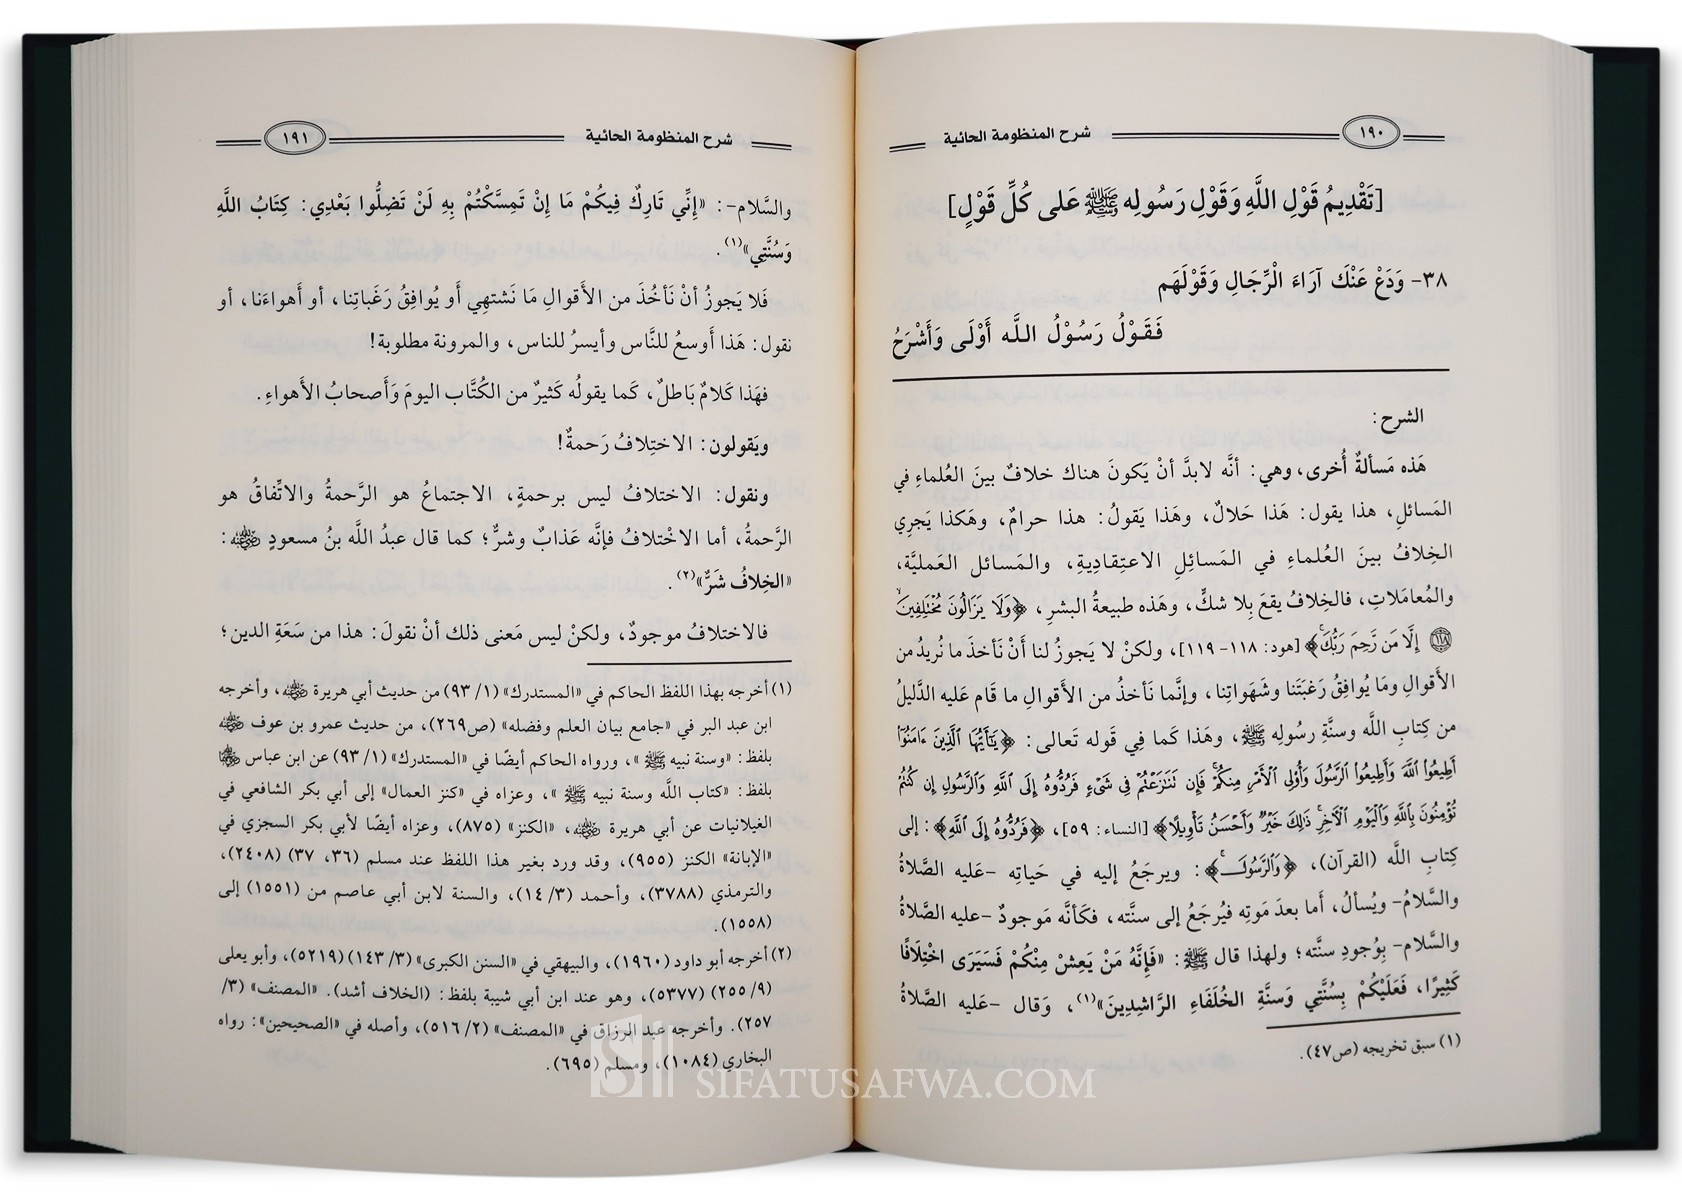 ١٩٠ شرح المنظومة الحائية
[تَقْدِيمُ قَوْلِ اللَّهِ وَقَوْلِ رَسُولِه ﷺ عَلى كُلِّ قَوْلٍ]
٣٨- وَدَعْ عَنْكَ آرَاءَ الْرِّجَالِ وَقَوْلَهَم
فَقَوْلُ رَسُوْلُ اللـه أَوْلَى وَأَشْرَحُ
الشرح:
هَذه مَسألةٌ أُخرى، وهي: أنَّه لابدَّ أنْ يَكونَ هناك خلافٌ بينَ العُلماءِ في
المَسائلِ، هذا يقول: هَذا حَلالٌ، وهَذا يَقولُ: هذا حرامٌ، وهَكذا يَجرِي
الخِلافُ بينَ العُلماءِ في المَسائِلِ الاعتِقاديةِ، والمَسائل العَمليَّة،
والمُعامَلاتِ، فالخِلافُ يقعَ بِلا شكٍّ، وهَذه طبيعةُ البشرِ، ﴿وَلَا يَزَالُونَ مُخْتَلِفِينَ
١١٨ إِلَّا مَن رَّحِمَ رَبُّكَ﴾ [هود: ١١٨- ١١٩]، ولكنْ لا يَجوزُ لنا أَنْ نَأخذَ ما نُريدُ من
الأقوالِ ومَا يُوافِقُ رَغبَتَنا وشَهَواتِنا، وإنَّما نَأخذُ من الأَقوالِ ما قَام عَليه الدَّليلُ
من كِتابِ اللَّه وسنَّةِ رسُولِه ﷺ، وهَذا كَما فِي قَوله تَعالى: ﴿يَٰٓأَيُّهَا ٱلَّذِينَ ءَامَنُوٓا۟
أَطِيعُوا۟ ٱللَّهَ وَأَطِيعُوا۟ ٱلرَّسُولَ وَأُو۟لِى ٱلْأَمْرِ مِنكُمْ ۖ فَإِن تَنَٰزَعْتُمْ فِى شَىْءٍ فَرُدُّوهُ إِلَى ٱللَّهِ وَٱلرَّسُولِ إِن كُنتُمْ
تُؤْمِنُونَ بِٱللَّهِ وَٱلْيَوْمِ ٱلْءَاخِرِ ۚ ذَٰلِكَ خَيْرٌ وَأَحْسَنُ تَأْوِيلًا﴾ [النساء: ٥٩]، ﴿فَرُدُّوهُ إِلَى ٱللَّهِ﴾: إلى
كِتابِ اللَّه (القرآن)، ﴿وَٱلرَّسُولِ ۚ﴾: ويرجَعُ إليه في حَياتِه -عَليه الصَّلاةُ
والسَّلامُ- ويُسألُ، أما بعدَ مَوتِه فيُرجَعُ إلى سنَّته، فكَأنَّه مَوجودٌ -عليه الصَّلاةُ
والسَّلام- بِوُجودِ سنَّته؛ ولهذا قال ﷺ: «فَإِنَّهُ مَنْ يَعِشْ مِنْكُمْ فَسَيَرَى اخْتِلَافًا
كَثِيرًا، فَعَلَيْكُمْ بِسُنَّتِي وَسنَّةِ الخُلَفَاءِ الرَّاشِدِينَ»(١)، وَقال -عَليه الصَّلاةُ
(١) سبق تخريجه (ص٤٧).
شرح المنظومة الحائية ١٩١
والسَّلام-: «إِنِّي تَارِكٌ فِيكُمْ مَا إِنْ تَمِسَّكْتُمْ بِهِ لَنْ تَضِلُّوا بَعْدِي: كِتَابُ اللَّهِ
وَسُنَّتِي»(١).
فَلا يَجوزُ أنْ نَأخُذَ من الأَقوالِ مَا نَشتهِي أَو يُوافِقُ رَغَباتِنا، أو أَهواءَنا، أو
نقول: هَذا أَوسعُ للنَّاس وأَيسرُ للناس، والمَرونة مطلوبة!
فهَذا كَلامٌ بَاطلٌ، كَما يقولُه كَثيرٌ من الكُتَّاب اليومَ وَأَصحابُ الأَهواءِ.
ويَقولون: الاختِلافُ رَحمةٌ!
ونقول: الاختلافُ ليس برحمةٍ، الاجتماعُ هو الرَّحمةُ والاتِّفاقُ هو
الرَّحمةُ، أما الاخْتلافُ فإنَّه عَذابٌ وشرٌّ؛ كما قال عبدُ اللَّه بنُ مسعودٍ رضي الله عنه:
«الخِلافُ شَرٌّ»(٢).
فالاختلافُ موجودٌ، ولكنْ ليس مَعنى ذلك أنْ نقولَ: هذا من سَعَةِ الدين؛
(١) أخرجه بهذا اللفظ الحاكم في «المستدرك» (١/ ٩٣) من حديث أبي هريرة رضي الله عنه، وأخرجه
ابن عبد البر في «جامع بيان العلم وفضله» (ص٢٦٩)، من حديث عمرو بن عوف رضي الله عنه
بلفظ: «وسنة نبيه ﷺ»، ورواه الحاكم أيضًا في «المستدرك» (١/ ٩٣) عن ابن عباس رضي الله عنهما
بلفظ: «كتاب اللَّه وسنة نبيه ﷺ»، وعزاه في «كنز العمال» إلى أبي بكر الشافعي في
الغيلانيات عن أبي هريرة رضي الله عنه، «الكنز» (٨٧٥)، وعزاه أيضًا لأبي بكر السجزي في
«الإبانة» الكنز (٩٥٥)، وقد ورد بغير هذا اللفظ عند مسلم (٣٦، ٣٧) (٢٤٠٨)،
والترمذي (٣٧٨٨)، وأحمد (٣/ ١٤)، والسنة لابن أبي عاصم من (١٥٥١) إلى
(١٥٥٨).
(٢) أخرجه أبو داود (١٩٦٠)، والبيهقي في «السنن الكبرى» (٣/ ١٤٣) (٥٢١٩)، وأبو يعلى
(٩/ ٢٥٥) (٥٣٧٧)، وهو عند ابن أبي شيبة بلفظ: (الخلاف أشد). «المصنف» (٣/
٢٥٧). وأخرجه عبد الرزاق في «المصنف» (٢/ ٥١٦)، وأصله في «الصحيحين»: رواه
البخاري (١٠٨٤)، ومسلم (٦٩٥).
SIFATUSAFWA.COM